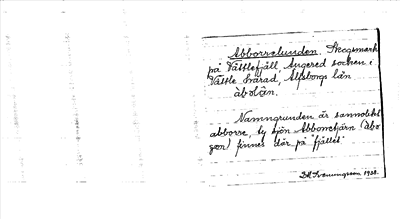 Abborrelunden. Skogsmark
på Vättlefjäll Angered socken i
Vättle härad, Älfsborgs län
åbolån.
Namngrunden är sannolikt
abborre, ty sjön Abborretjärn (åbo
finnes där på "fjället".
1938.